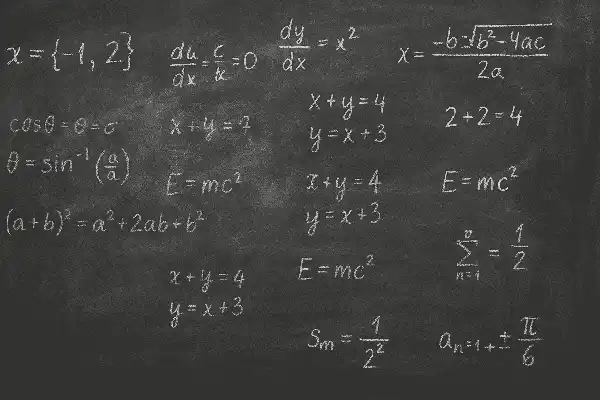 x = {-1, 2}
du/dx = c/x = 0
dy/dx = x²
x = -b ± √b² - 4ac / 2a
cosθ = θ = σ
x + y = 4
y = x + 3
2 + 2 = 4
θ = sin⁻¹ (a/a)
E = mc²
x + y = 4
y = x + 3
E = mc²
(a+b)² = a² + 2ab + b²
E = mc²
∑ n=1 = 1/2
x + y = 4
y = x + 3
Sm = 1/2²
aₙ₌₁ + ± π/6